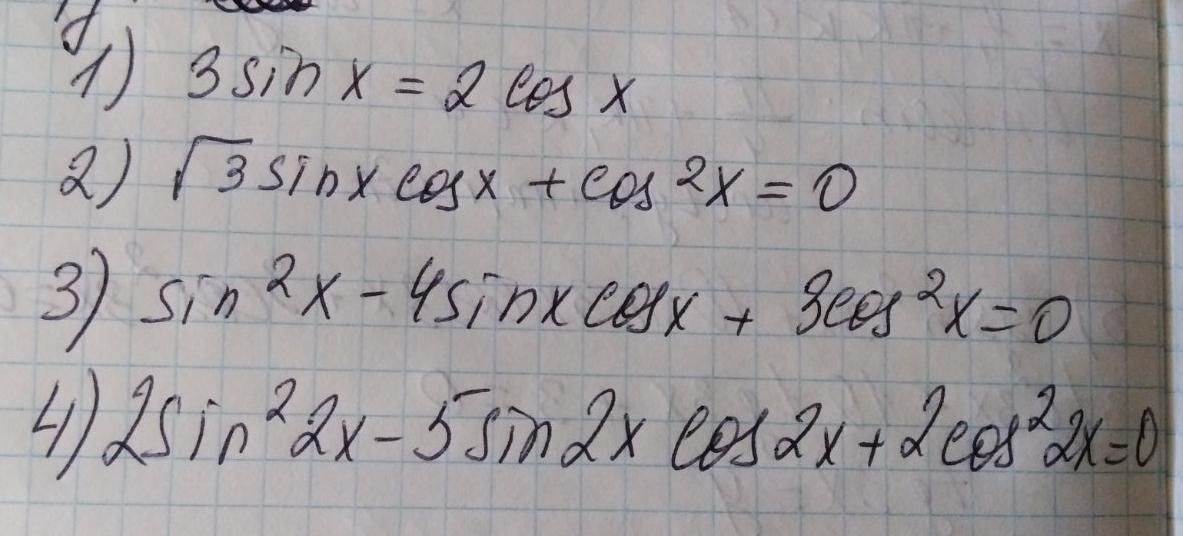 1) 3 sin x = 2 cos x
2) √3 sin x cos x + cos²x = 0
3) sin²x - 4 sin x cos x + 3 cos²x = 0
4) 2 sin²2x - 5 sin 2x cos 2x + 2 cos²2x = 0